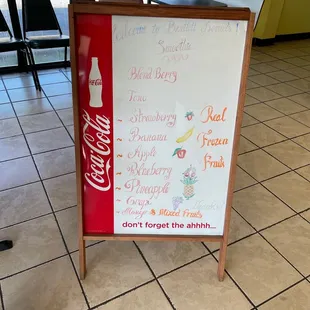 Welcome to
Smoothie
Blend Berry
Coca-Cola
Strawberry
Real
Banana
Frozen
Apple
Fruits
Blueberry
Pineapple
Grape
Mango
Mixed Fruits
don't forget the ahhhh...